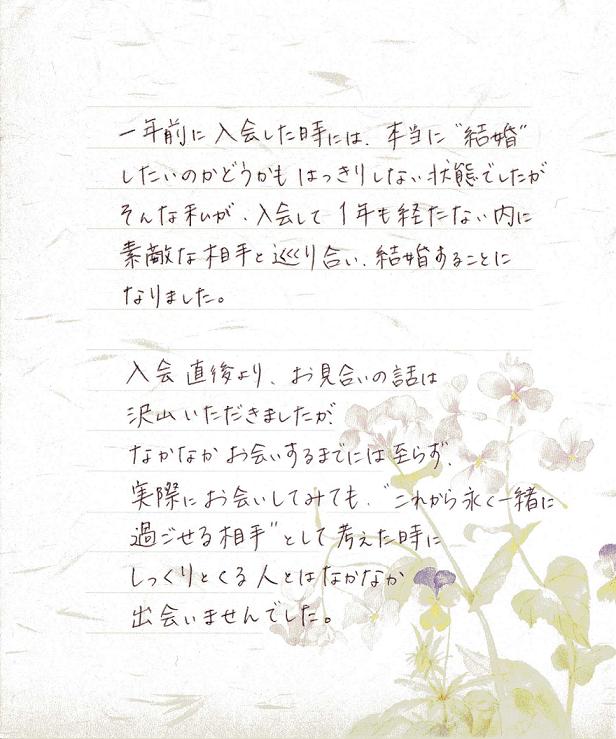 一年前に入会した時には、本当に"結婚"
したいのかどうかもはっきりしない状態でしたが
そんな私が、入会して1年も経たない内に
素敵な相手と巡り合い、結婚することに
なりました。
入会直後より、お見合いの話は
沢山いただきましたが、
なかなかお会いするまでには至らず、
実際にお会いしてみても、"これから永く一緒に
過ごせる相手"として考えた時に
しっくりとくる人とはなかなか
出会いませんでした。